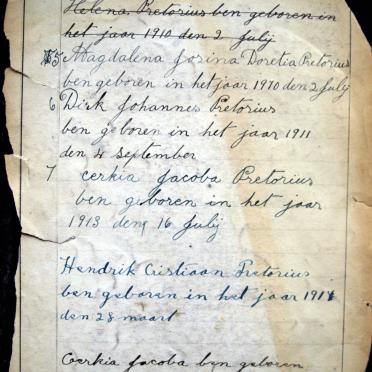 Helena Pretorius ben geboren in
het jaar 1910 den 2 July
5 Magdalena Josina Doretia Pretorius
ben geboren in het jaar 1910 den 2 July
6 Dirk Johannes Pretorius
ben geboren in het jaar 1911
den 4 September
7 cerkia Jacoba Pretorius
ben geboren in het jaar
1913 den 16 Julij
Hendrik Cristiaan Pretorius
ben geboren in het jaar
den 28 maart
Cerkia Jacoba ben geboren